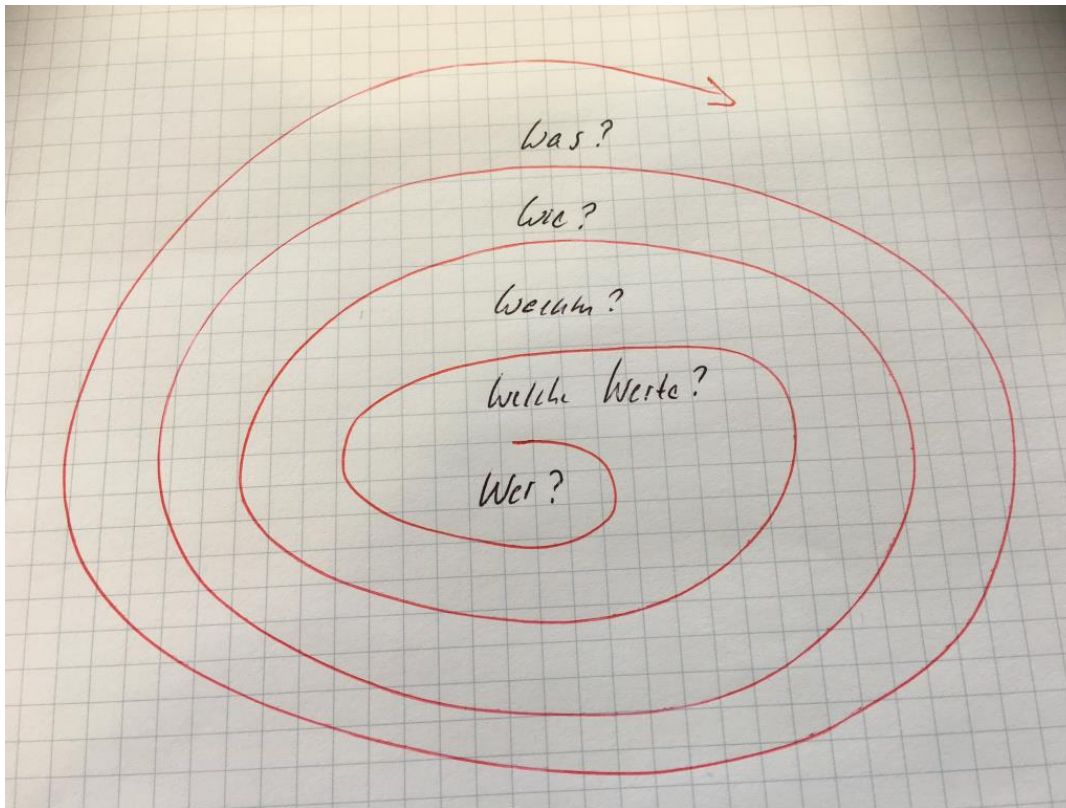 Was?
Wie?
Warum?
Welche Werte?
Wer?